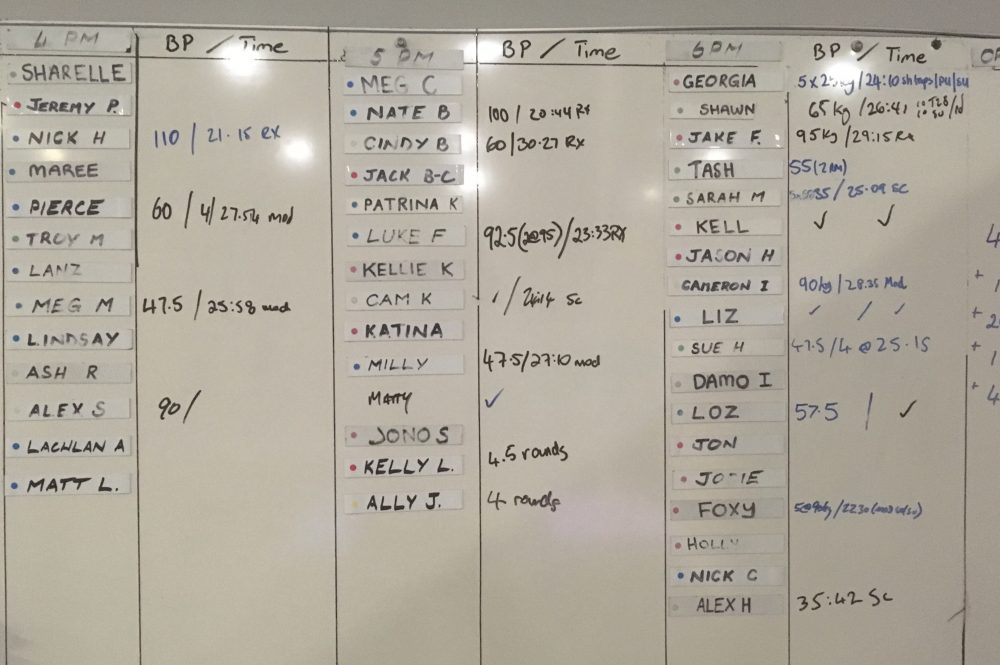 4 PM
BP / Time
SHARELLE
JEREMY P.
NICK H 110 / 21.15 RX
MAREE
PIERCE 60 / 4/27.54 mod
TROY M
LANZ
MEG M 47.5 / 25:58 mod
LINDSAY
ASH R
ALEX S 90/
LACHLAN A
MATT L.
5 PM
BP / Time
MEG C
NATE B 100 / 20:44 RX
CINDY B 60/30:27 RX
JACK B-C
PATRINA K
LUKE F 92.5(2@95)/23:33 RX
KELLIE K
CAM K ✓/ SC
KATINA
MILLY 47.5/27:10 mod
MATTY ✓
JONO S
KELLY L. 4.5 rounds
ALLY J. 4 rounds
6 PM
BP / Time
GEORGIA /24:10
SHAWN 65 kg /
JAKE F. 95kg/29:15 RX
TASH 55
SARAH M / 25:09 SC
KELL ✓ ✓
JASON H
CAMERON I 90kg / 28.35 Mod
LIZ ✓ / ✓
SUE H 47.5/4 @ 25.15
DAMO I
LOZ 57.5 / ✓
JON
FOXY
HOLLY
NICK C
ALEX H 35:42 SC
4
+ 1
+ 2
+ 1
+ 4